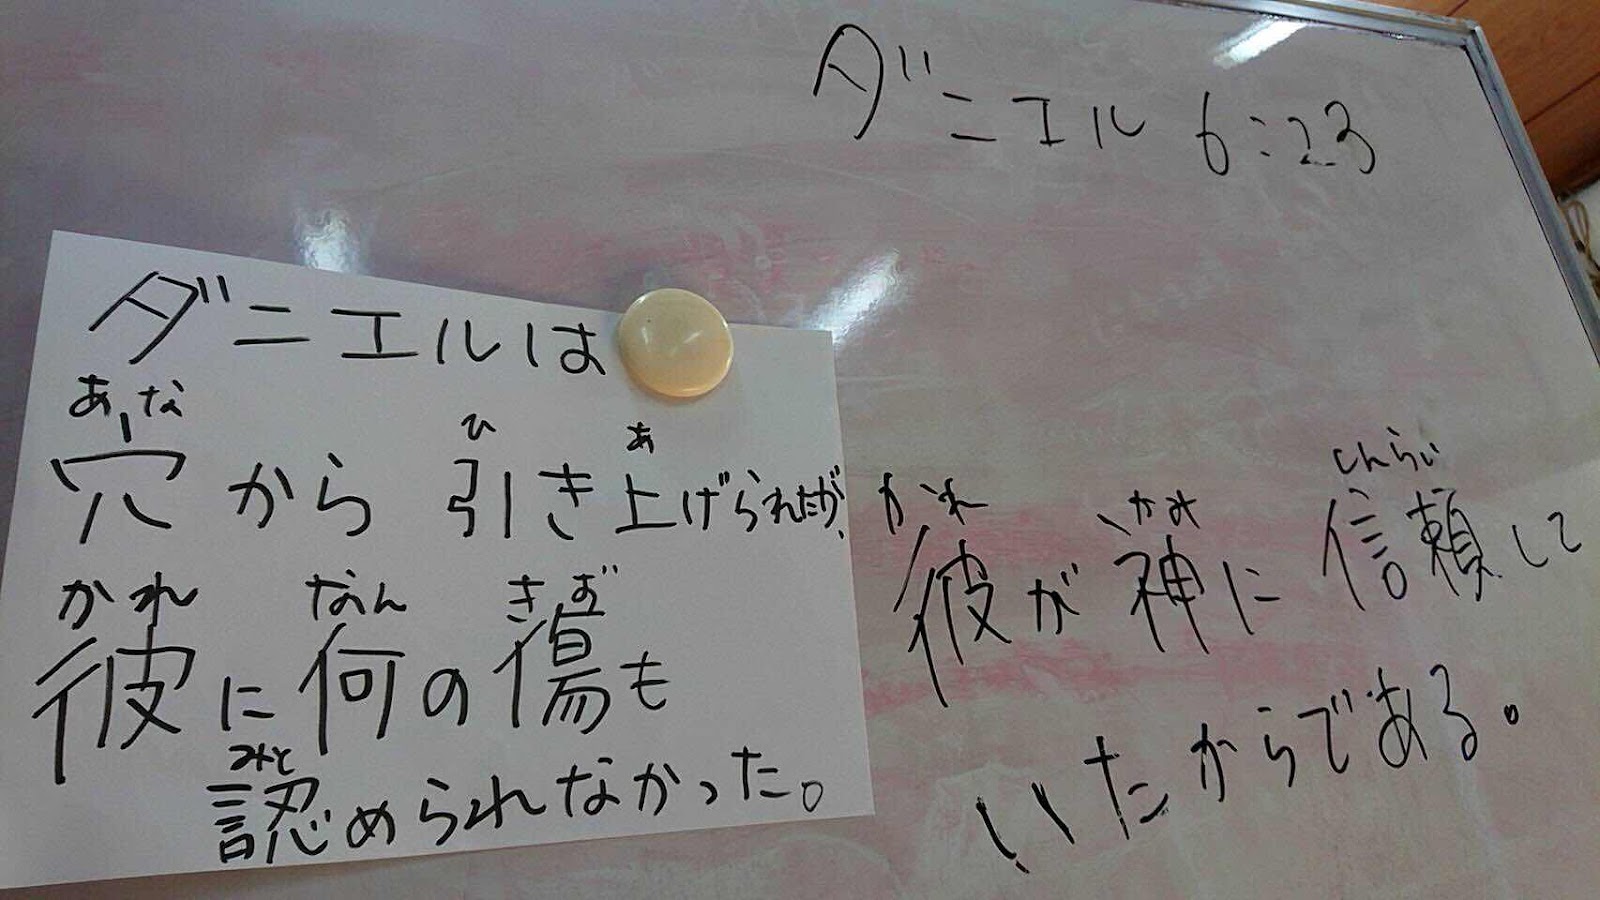 ダニエル 6:23
ダニエルは
あな ひ あ
穴から 引き上げられたが、
かれ なん きず
彼に何の傷も
みと
認められなかった。
かれ かみ しんらい
彼が神に信頼して
いたからである。